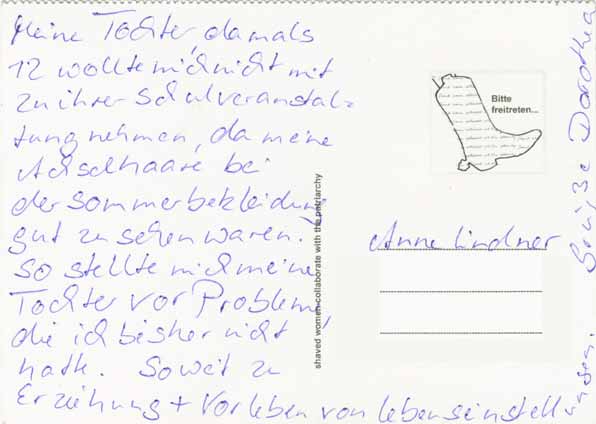 Meine Tochter, damals
12 wollte mich nicht mit
zu ihrer Schulveranstal=
tung nehmen, da meine
Achselhaare bei
der Sommerbekleidung
gut zu sehen waren.
So stellte mich meine
Tochter vor Probleme,
die ich bisher nicht
hatte. Soweit zu
Erziehung + Vorleben von Lebenseinstellungen.
Grüße Dorothea
shaved women collaborate with the patriarchy
Bitte
freitreten...
Anne Lindner